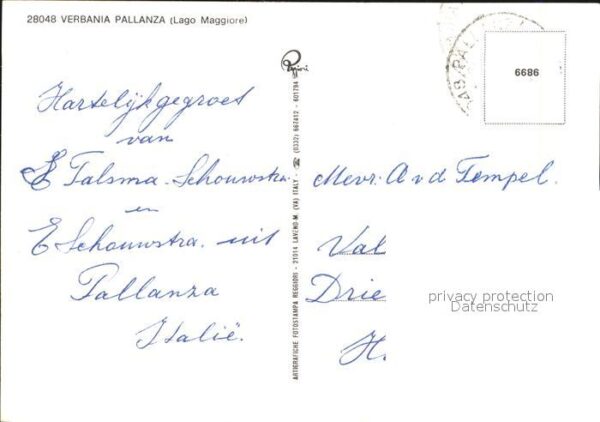 28048 VERBANIA PALLANZA (Lago Maggiore)
Hartelijk gegroet
van
E Talsma-Schouwstra.
en
E Schouwstra. uit
Pallanza
Italië.
ARTIGRAFICHE FOTOSTAMPA REGGIORI - 21014 LAVENO-M. (VA) ITALY - ☎ (0332) 667412 - 601294
6686
Mevr. A v d Tempel.
Val
Drie
H.
privacy protection
Datenschutz